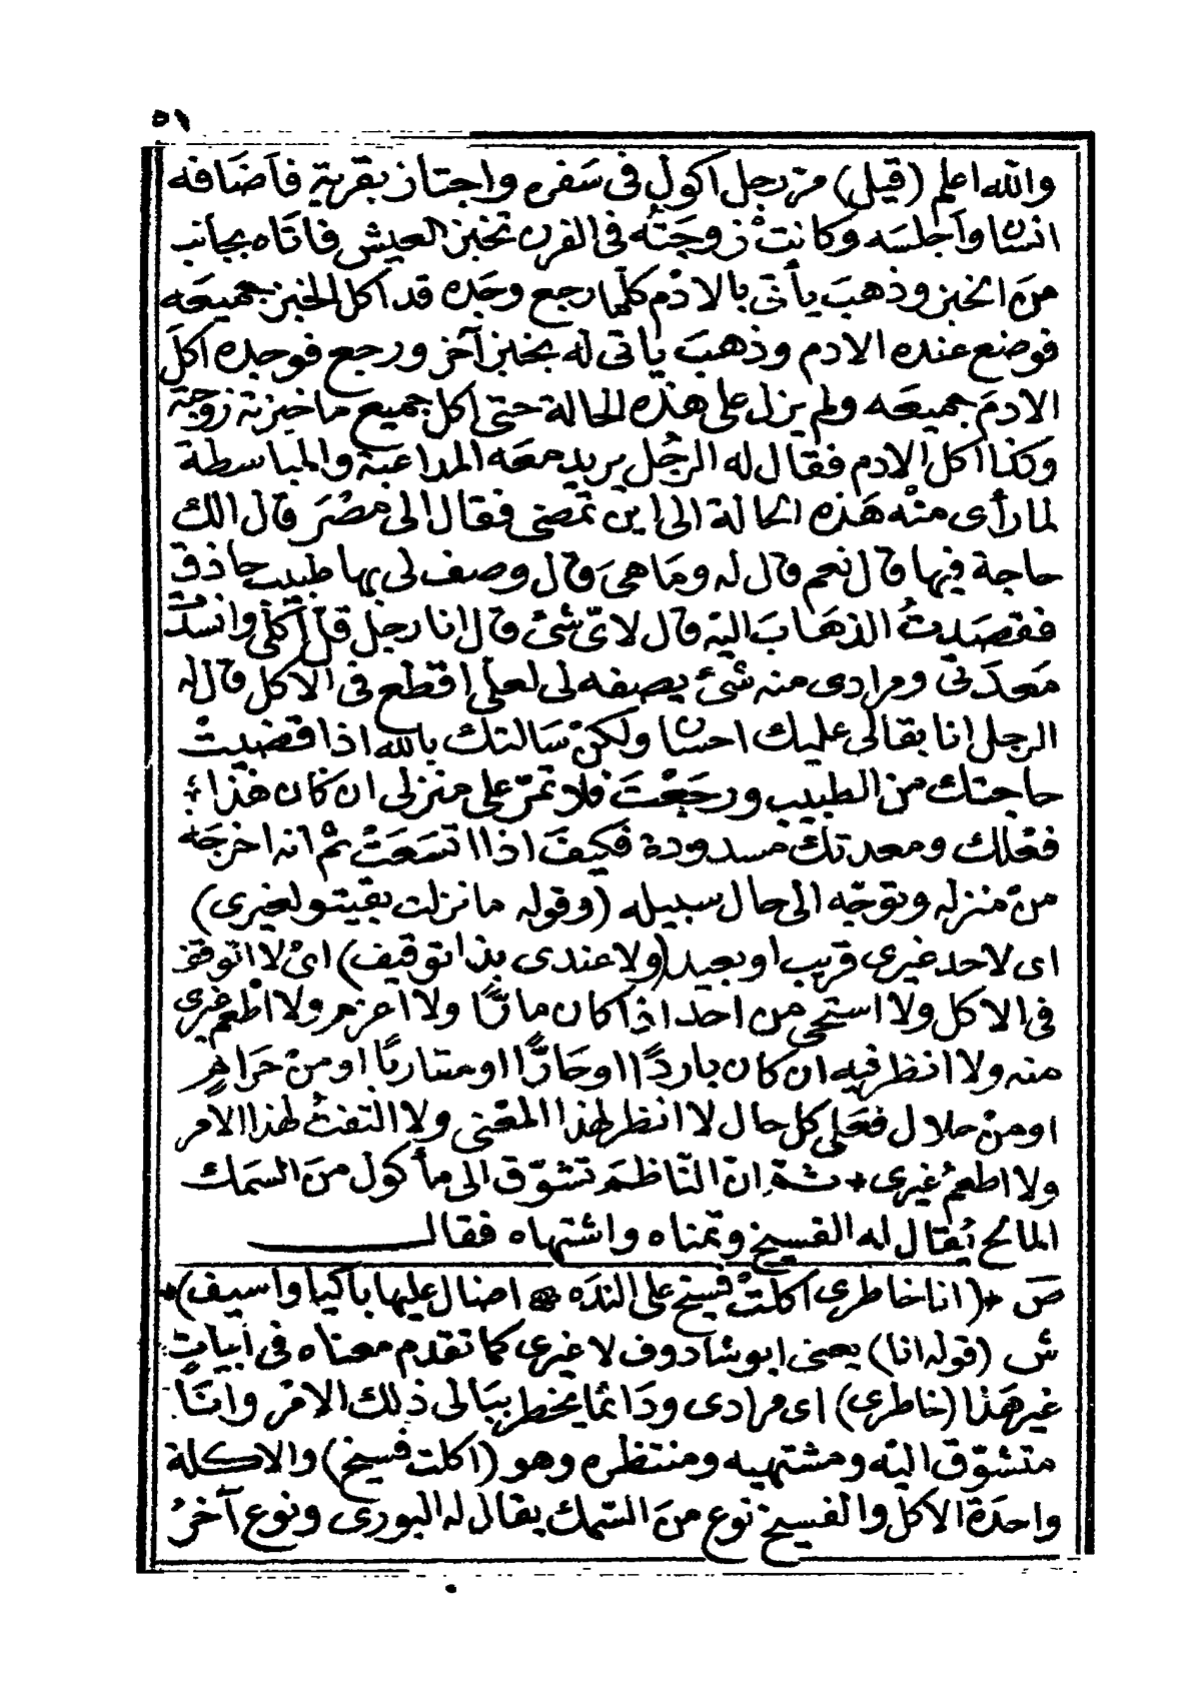 ٥١
والله اعلم (قيل) مرّ رجل أكول فى سَفره واجتاز بقرية فأضَافه
انسان وأجلسَه وكانتْ زوجَتُه فى الفرن تخبز العيش فاتاه بجانب
منَ الخبز وذهبَ يأتى بالادْم كلّما رجع وجَده قد أكل الخبز جميعَه
فوضع عنده الادم وذهبَ ياتى له بخبز آخر ورجع فوجده اكلَ
الادمَ جميعَه ولم يزل على هذه الحالة حتى اكل جميع ما خبزته زوجته
وكذا اكل الادم فقال له الرجُل يريد معَه المداعبة والمباسطة
لما رأى منْه هَذه الحالة الى اين تمضى فقال الى مصْرَ قال الك
حاجة فيها قال نعم قال له ومَا هىَ قال وصف لى بها طبيب حاذق
فقصَدتُ الذهَابَ اليْه قال لاىّ شئ قال انا رجل قلّ أكلى وانسدّت
مَعدَتى ومرادى منه شئ يصفه لى لعلى اقطع فى الاكل قال له
الرجل انا بقالى عليك احسان ولكنْ سَالتك بالله اذا قضيتْ
حاجتك من الطبيب ورجَعْتَ فلا تمرّ على منزلى ان كان هذا
فعْلك ومعدتك مسدودة فكيفَ اذا اتسَعَتْ ثم انه اخرجَه
منْ منزله وتوجّه الى حال سبيله (وقوله ما نزلت بقيتو لغيرى)
اى لاحد غيرى قريب او بعيد (ولا عندى بذا توقيف) اىْ لا اتوقف
فى الاكل ولا استحى من احد اذا كان مارًّا ولا اعزم ولا اطْعم غيرى
منه ولا انظر فيه ان كان باردًا او حَارًّا او متاربًا او منْ حَرامٍ
او منْ حلال فعَلى كل حال لا انظر لهذا المعْنى ولا التفتُ لهذا الامر
ولا اطعمُ غيرى ثمّ انّ النّاظمَ تشوّق الى مأكول منَ السّمك
المالح يُقال له الفسيخ وتمناه واشتهاه فقال
صَ (انا خاطرى اكلتْ فسيخ على النّدَه اضال عليها باكيا واسيف)
ش (قوله انا) يعنى ابو شادوف لا غيرى كما تقدم معناه فى أبياتٍ
غير هَذا (خاطرى) اى مرادى ودَائما يخطر ببَالى ذلك الامْر وانَا
متشوّق اليْه ومشتهيه ومنتظره وهو (اكلت فسيخ) والاكلة
واحدَة الاكل والفسيخ نوع منَ السّمك يقال له البورى ونوع آخرُ